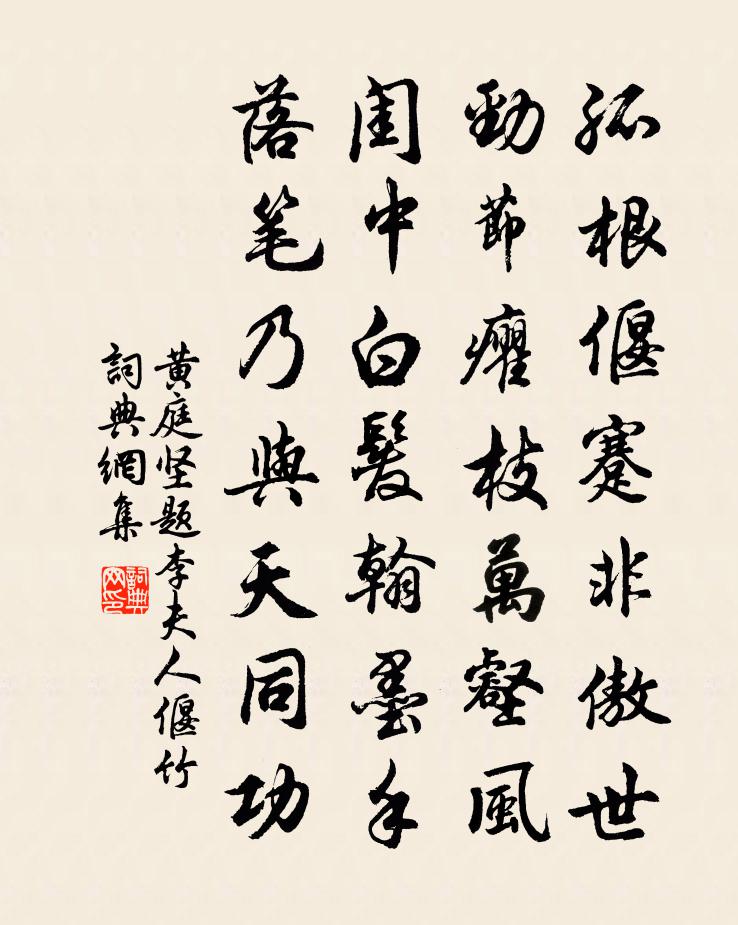 孤根偃蹇非傲世
勁節癯枝萬壑風
閨中白髮翰墨手
落笔乃與天同功
黄庭坚题李夫人偃竹
詞典網集
詞典網印